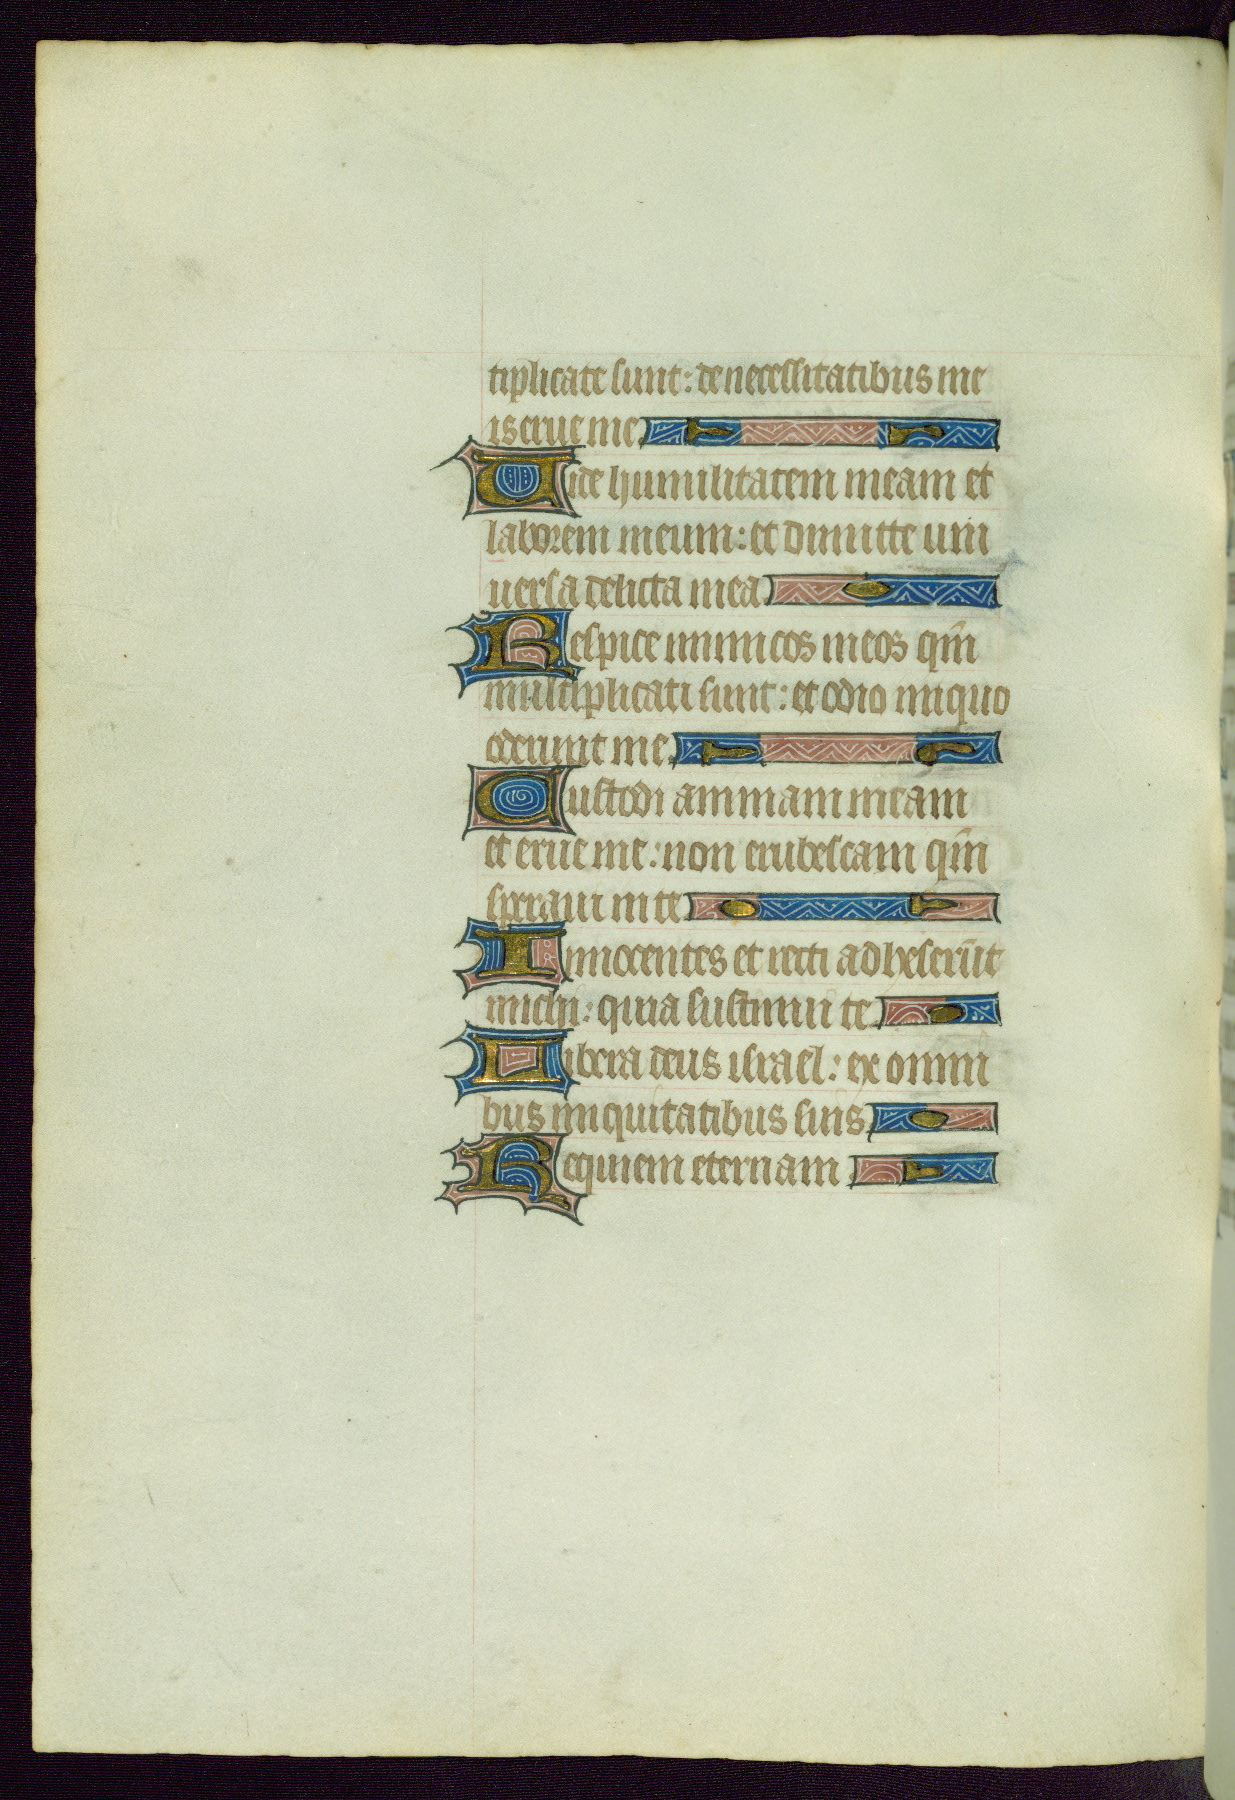 tiplicate sunt: de necessitatibus me
is erue me
Vide humilitatem meam et
laborem meum: et dimitte uni
uersa delicta mea
Respice inimicos meos qm̄
multiplicati sunt: et odio iniquo
oderunt me
Custodi animam meam
et erue me: non erubescam qm̄
speraui in te
Innocentes et recti adheserūt
michi: quia sustinui te
Libera deus israel: ex omni
bus iniquitatibus suis
Requiem eternam